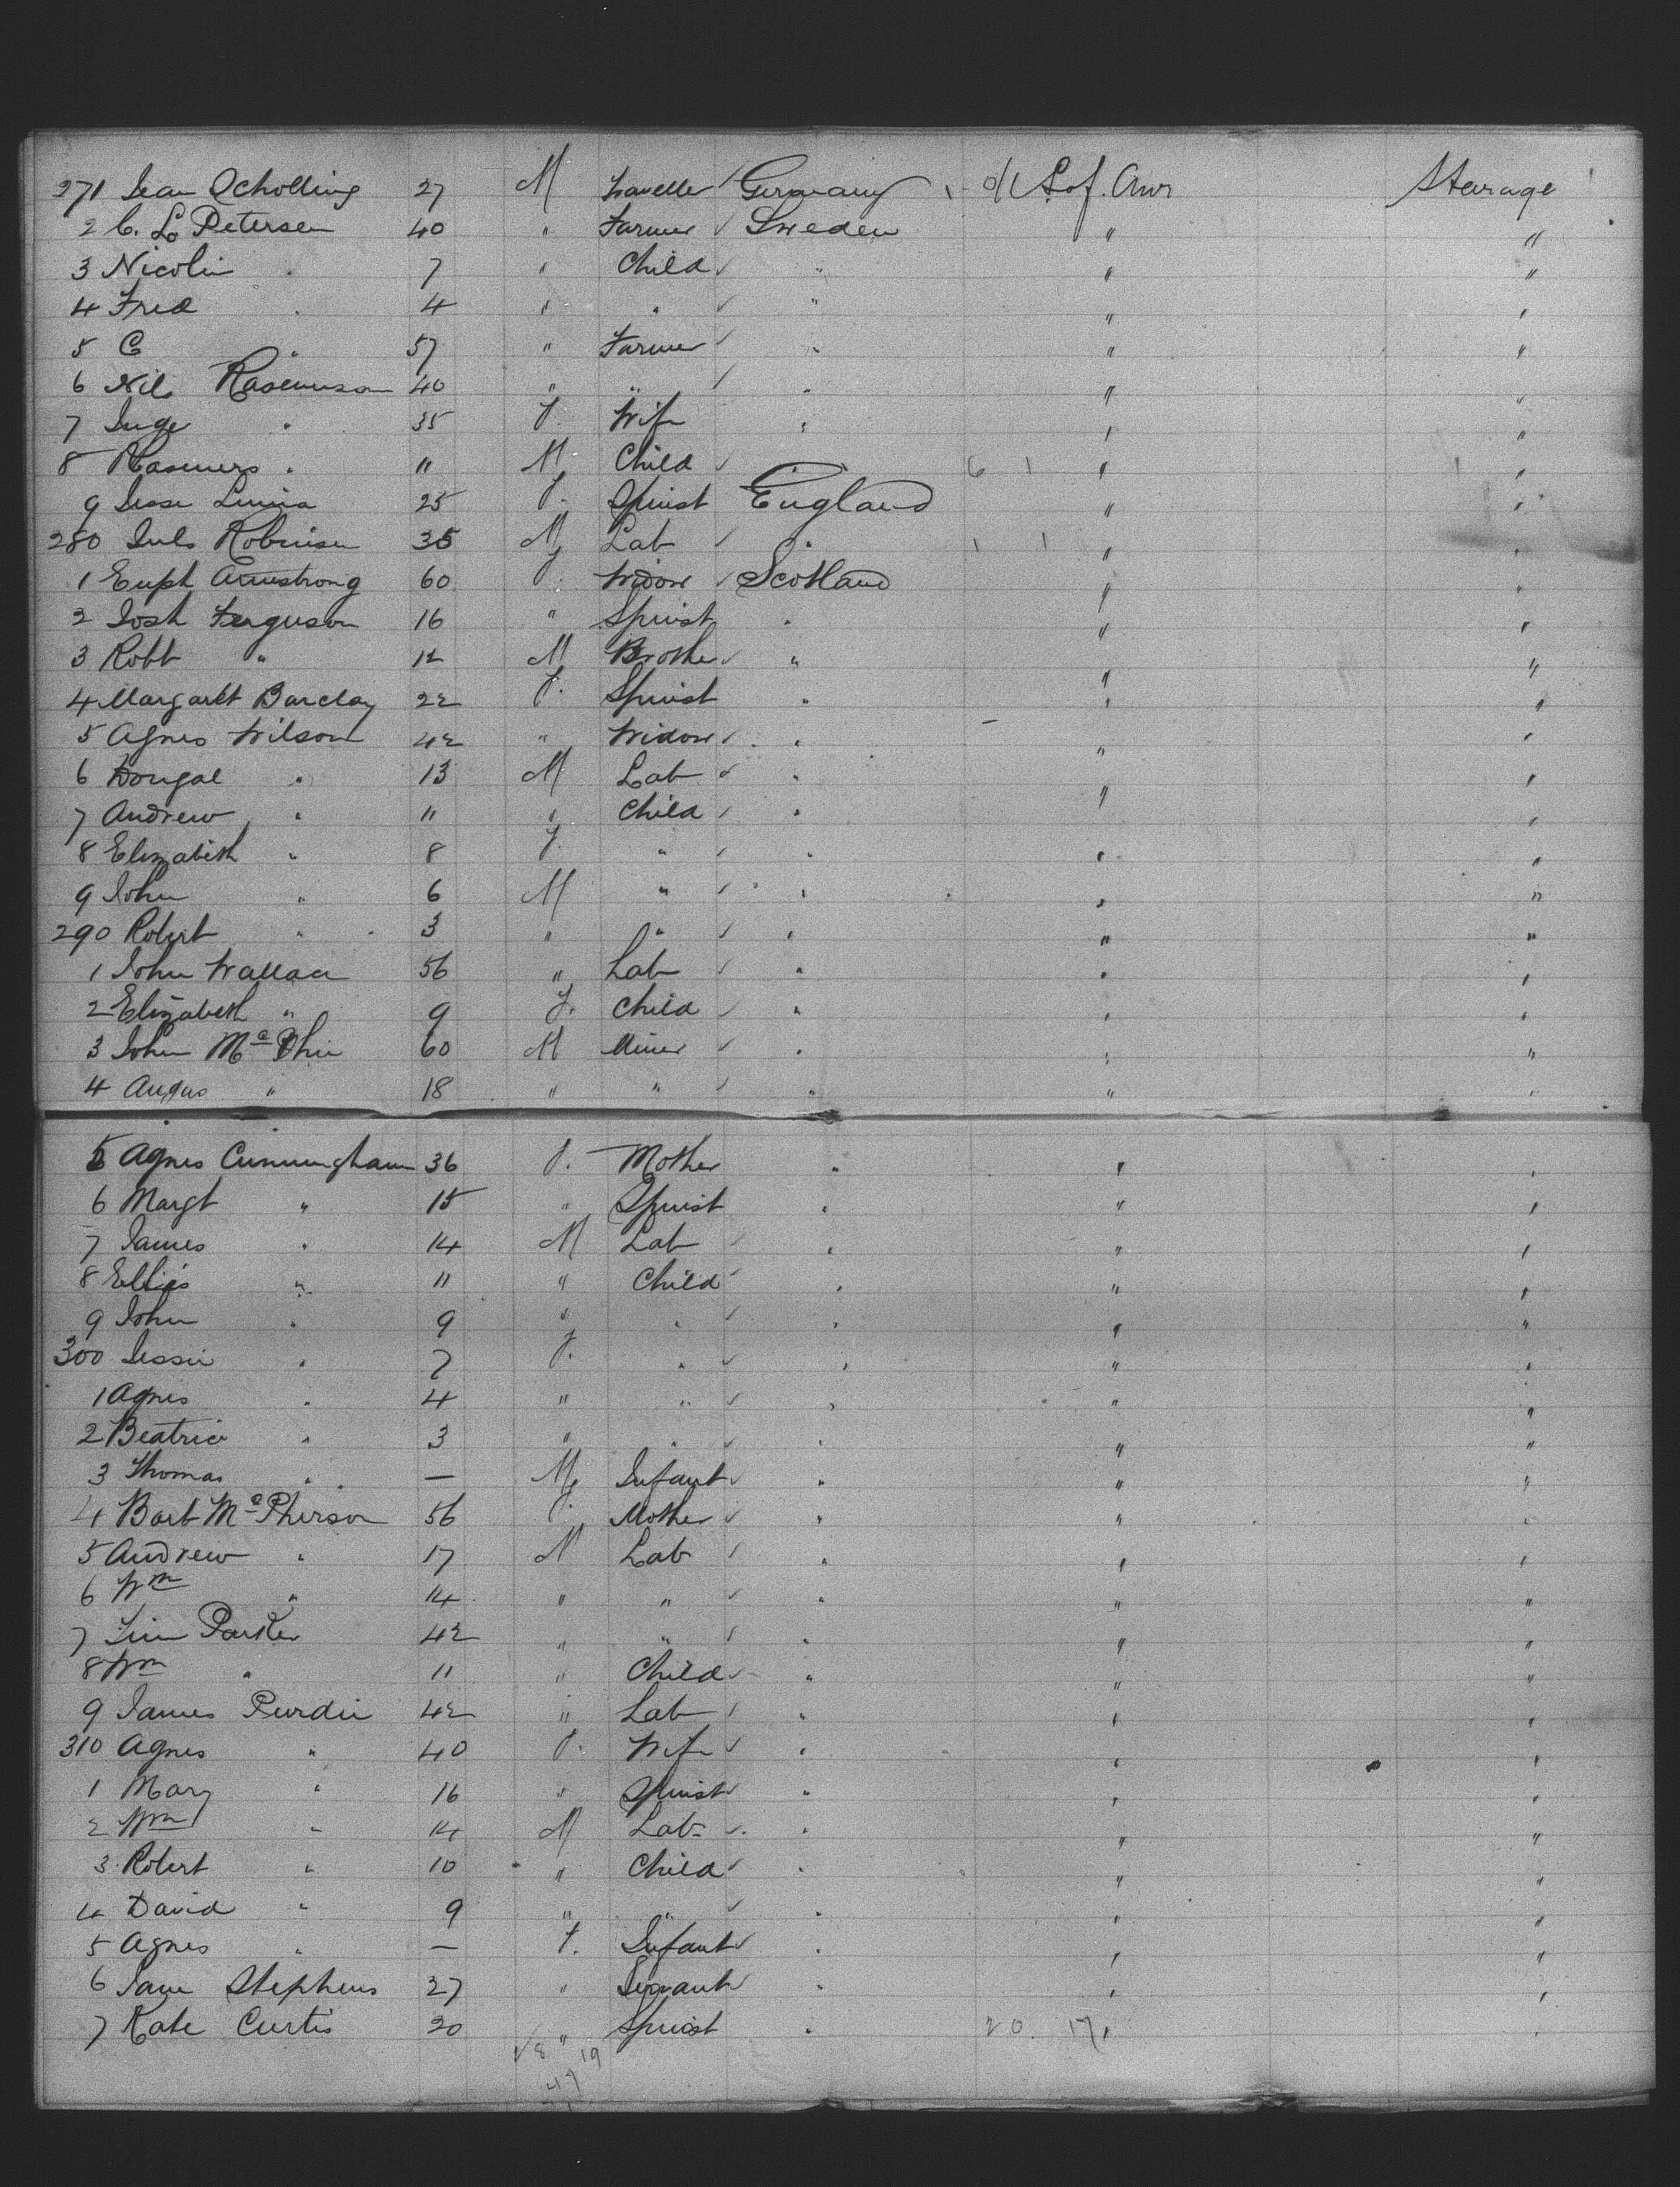 271 Jean Scholling 27 M Traveller Germany U.S. of Amr Sterage
2 C. L. Petersen 40 " Farmer Sweden " "
3 Nicolin " 7 " Child " " "
4 Fred " 4 " " " " "
5 C " 57 " Farmer " " "
6 Nils Rasmusson 40 " " " " "
7 Inge " 35 F. Wife " " "
8 Rasmers " 11 M Child " "
9 Jesse 25 F. Spinst England " "
280 Juls Robinson 35 M Lab " " "
1 Euph Armstrong 60 F. Widow Scotland " "
2 Josh Ferguson 16 " Spinst " " "
3 Robt " 12 M Brother " " "
4 Margaret Barclay 22 F. Spinst " " "
5 Agnes Wilson 42 " Widow " " "
6 Dougal " 13 M Lab " " "
7 Andrew " 11 " Child " " "
8 Elizabeth " 8 F. " " " "
9 John " 6 M " " " "
290 Robert " 3 " " " " "
1 John Wallace 56 " Lab " " "
2 Elizabeth " 9 F. Child " " "
3 John McPhie 60 M Miner " " "
4 Angus " 18 " " " " "
5 Agnes Cunningham 36 F. Mother " " "
6 Margt " 15 " Spinst " " "
7 James " 14 M Lab " " "
8 Ellis " 11 " Child " " "
9 John " 9 " " " " "
300 Jessie " 7 F. " " " "
1 Agnes " 4 " " " " "
2 Beatrice " 3 " " " " "
3 Thomas " — M Infant " " "
4 Barb McPherson 56 F. Mother " " "
5 Andrew " 17 M Lab " " "
6 Wm " 14 " " " " "
7 Parker 42 " " " " "
8 Wm " 11 " Child " " "
9 James Purdie 42 " Lab " " "
310 Agnes " 40 F. Wife " " "
1 Mary " 16 " Spinst " " "
2 Wm " 14 M Lab " " "
3 Robert " 10 " Child " " "
4 David " 9 " " " " "
5 Agnes " — F. Infant " " "
6 Jane Stephens 27 " Servant " " "
7 Kate Curtis 20 " Spinst " 20 17 " "